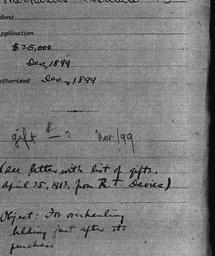 dent
pplication
$25,000
Dec, 1899
uthorized Dec, 1899
gift Nov/99
(see letter with list of gifts,
April 25, 1913, from R. T Davies)
Object: For overhauling
just after its
purchase